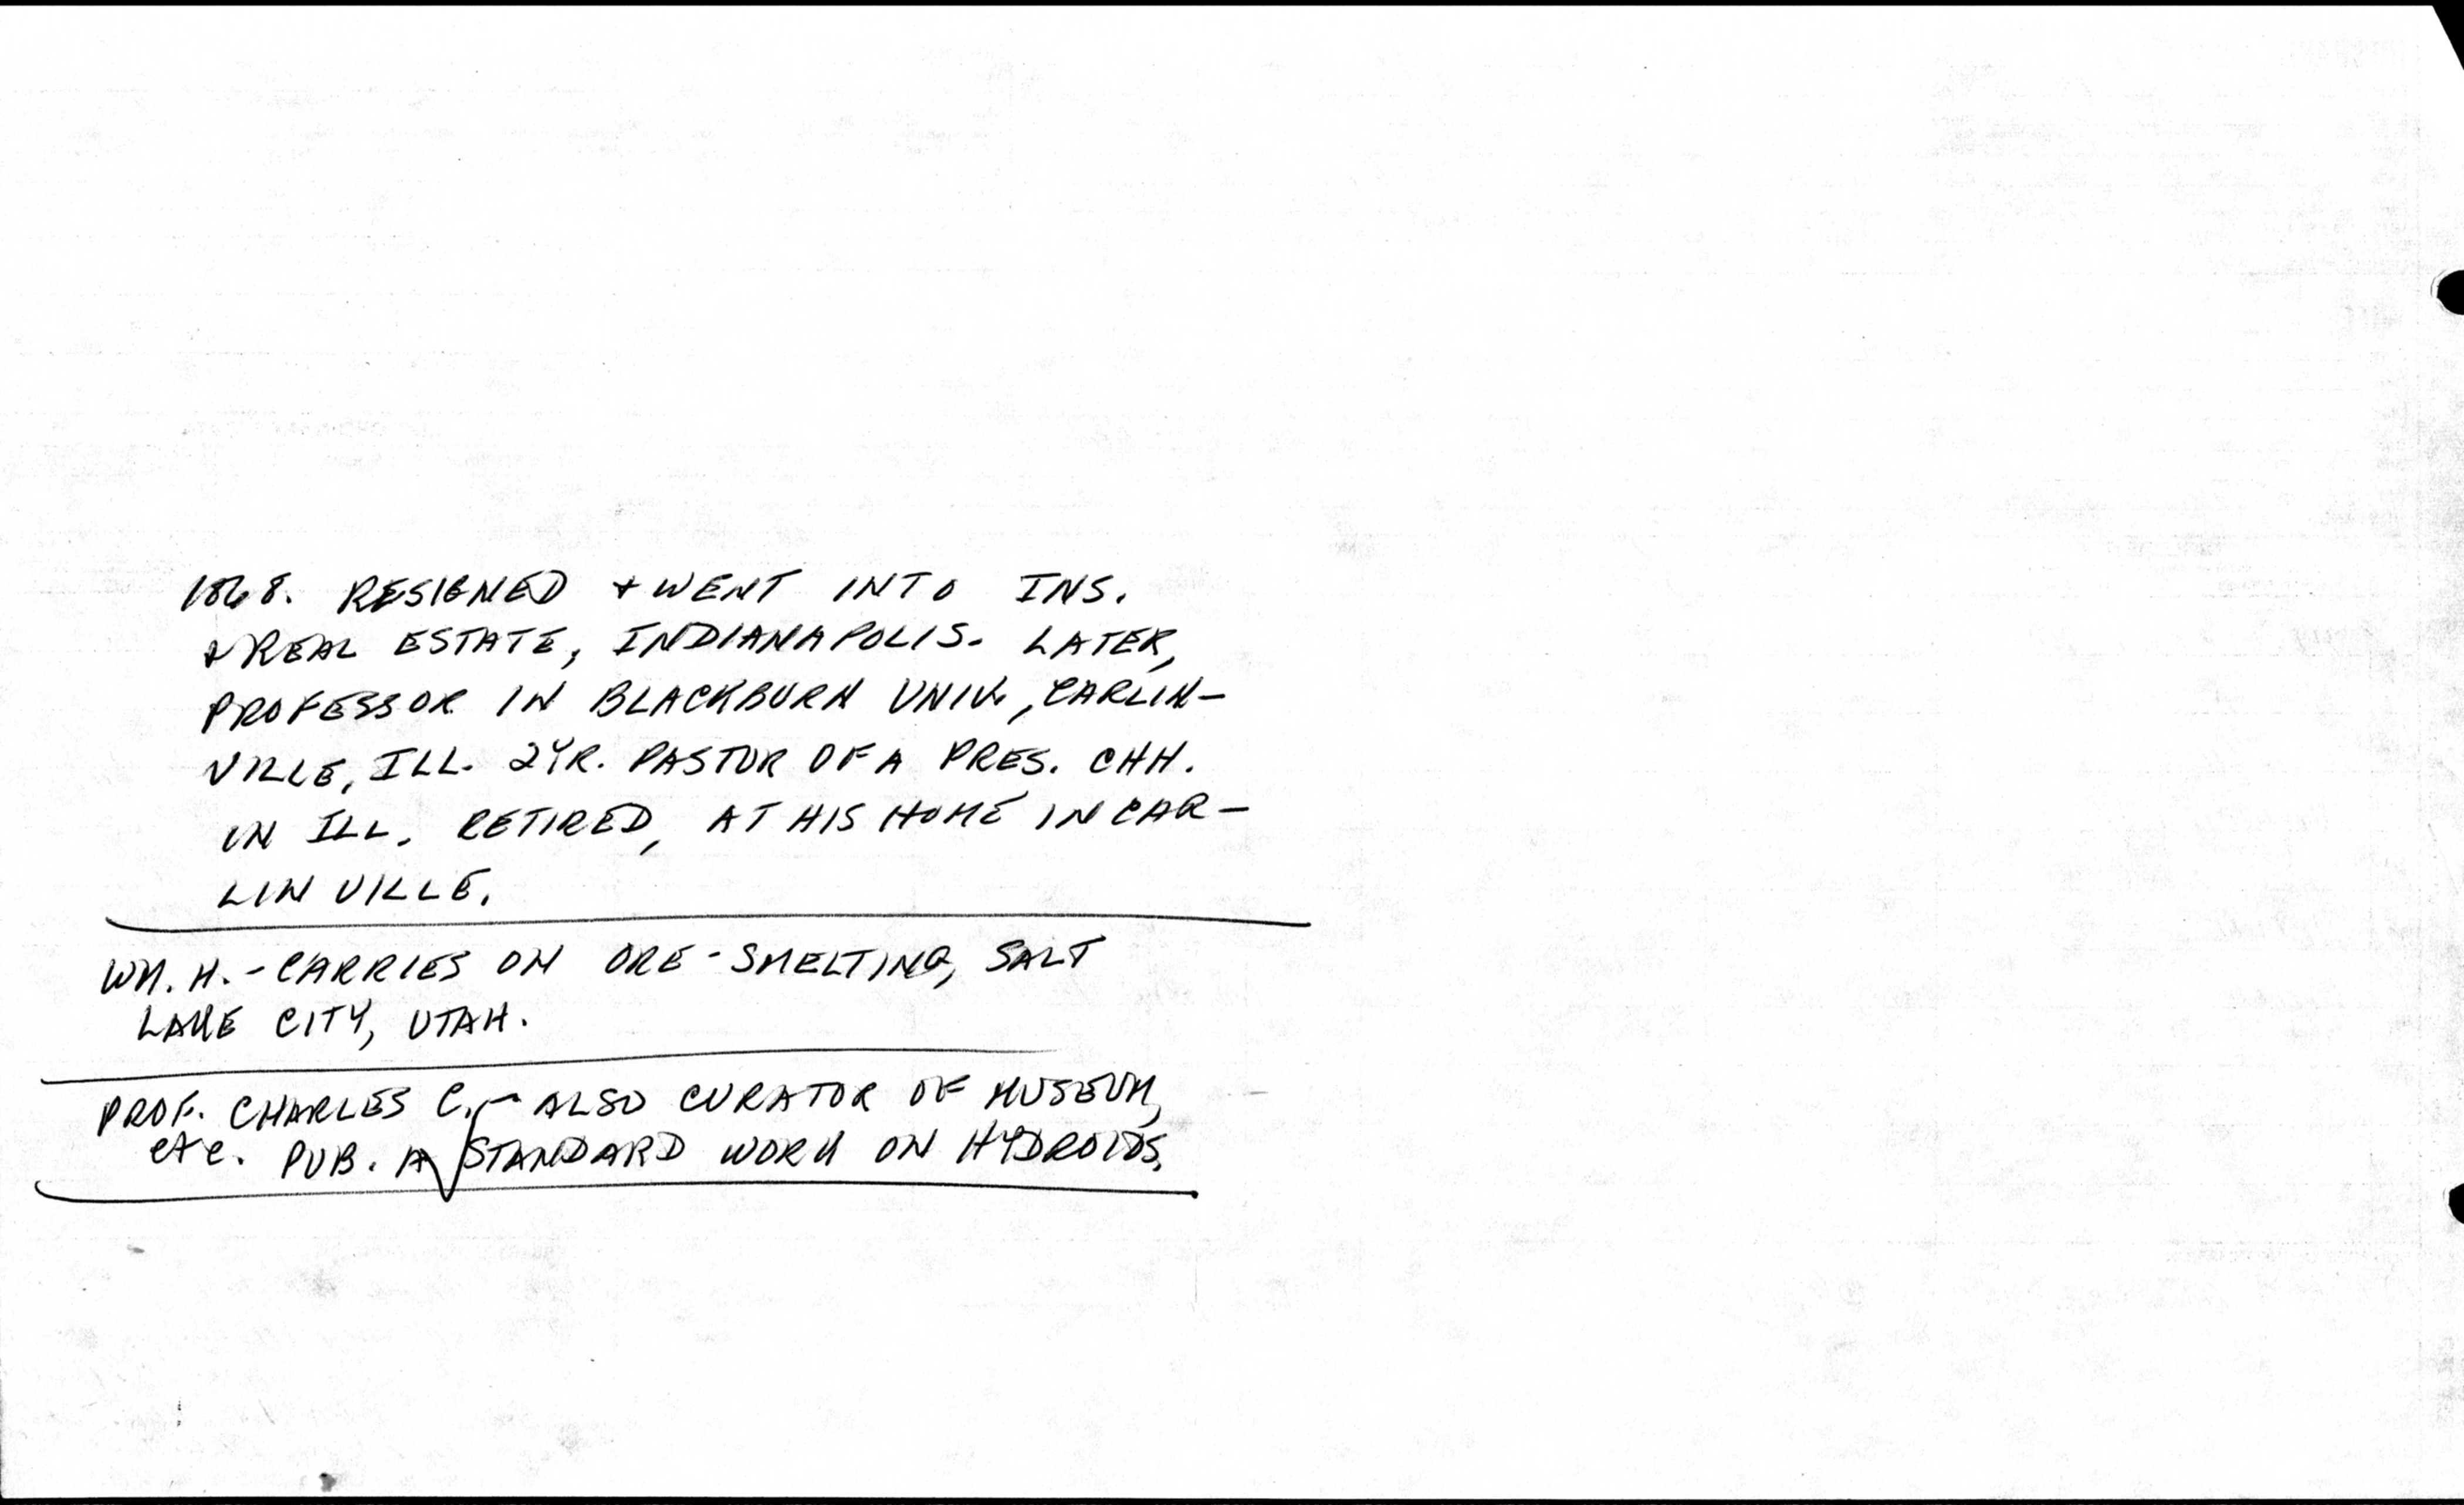 1868. RESIGNED + WENT INTO INS.
+ REAL ESTATE, INDIANAPOLIS. LATER,
PROFESSOR IN BLACKBURN UNIV., CARLIN-
VILLE, ILL. 2YR. PASTOR OF A PRES. CHH.
IN ILL. RETIRED, AT HIS HOME IN CAR-
LINVILLE.
WM. H. - CARRIES ON ORE-SMELTING, SALT
LAKE CITY, UTAH.
PROF. CHARLES C. - ALSO CURATOR OF MUSEUM,
etc. PUB. A STANDARD WORK ON HYDROIDS.